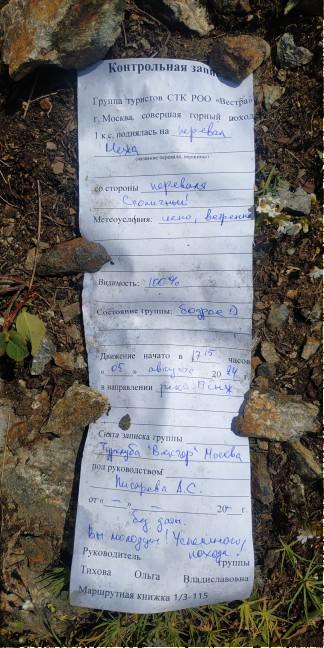 Контрольная запи
Группа туристов СТК РОО «Вестра»
г. Москва, совершая горный поход
1 к.с, поднялась на перевал
Меха
(название перевала, вершины)
со стороны перевала
Столичный
Метеоусловия: ясно, ветренно
Видимость: 100%
Состояние группы: бодрое :)
Движение начато в 17 15 часов
« 05 » августа 20 24
в направлении река Псыж
Снята записка группы
Турклуба "Вектор" Москва
под руководством
Писарева А.С.
от « — » — 20 — г.
без даты.
Вы молодцы! Успешного
похода!
Руководитель группы
Тихова Ольга Владиславовна
Маршрутная книжка 1/3-115